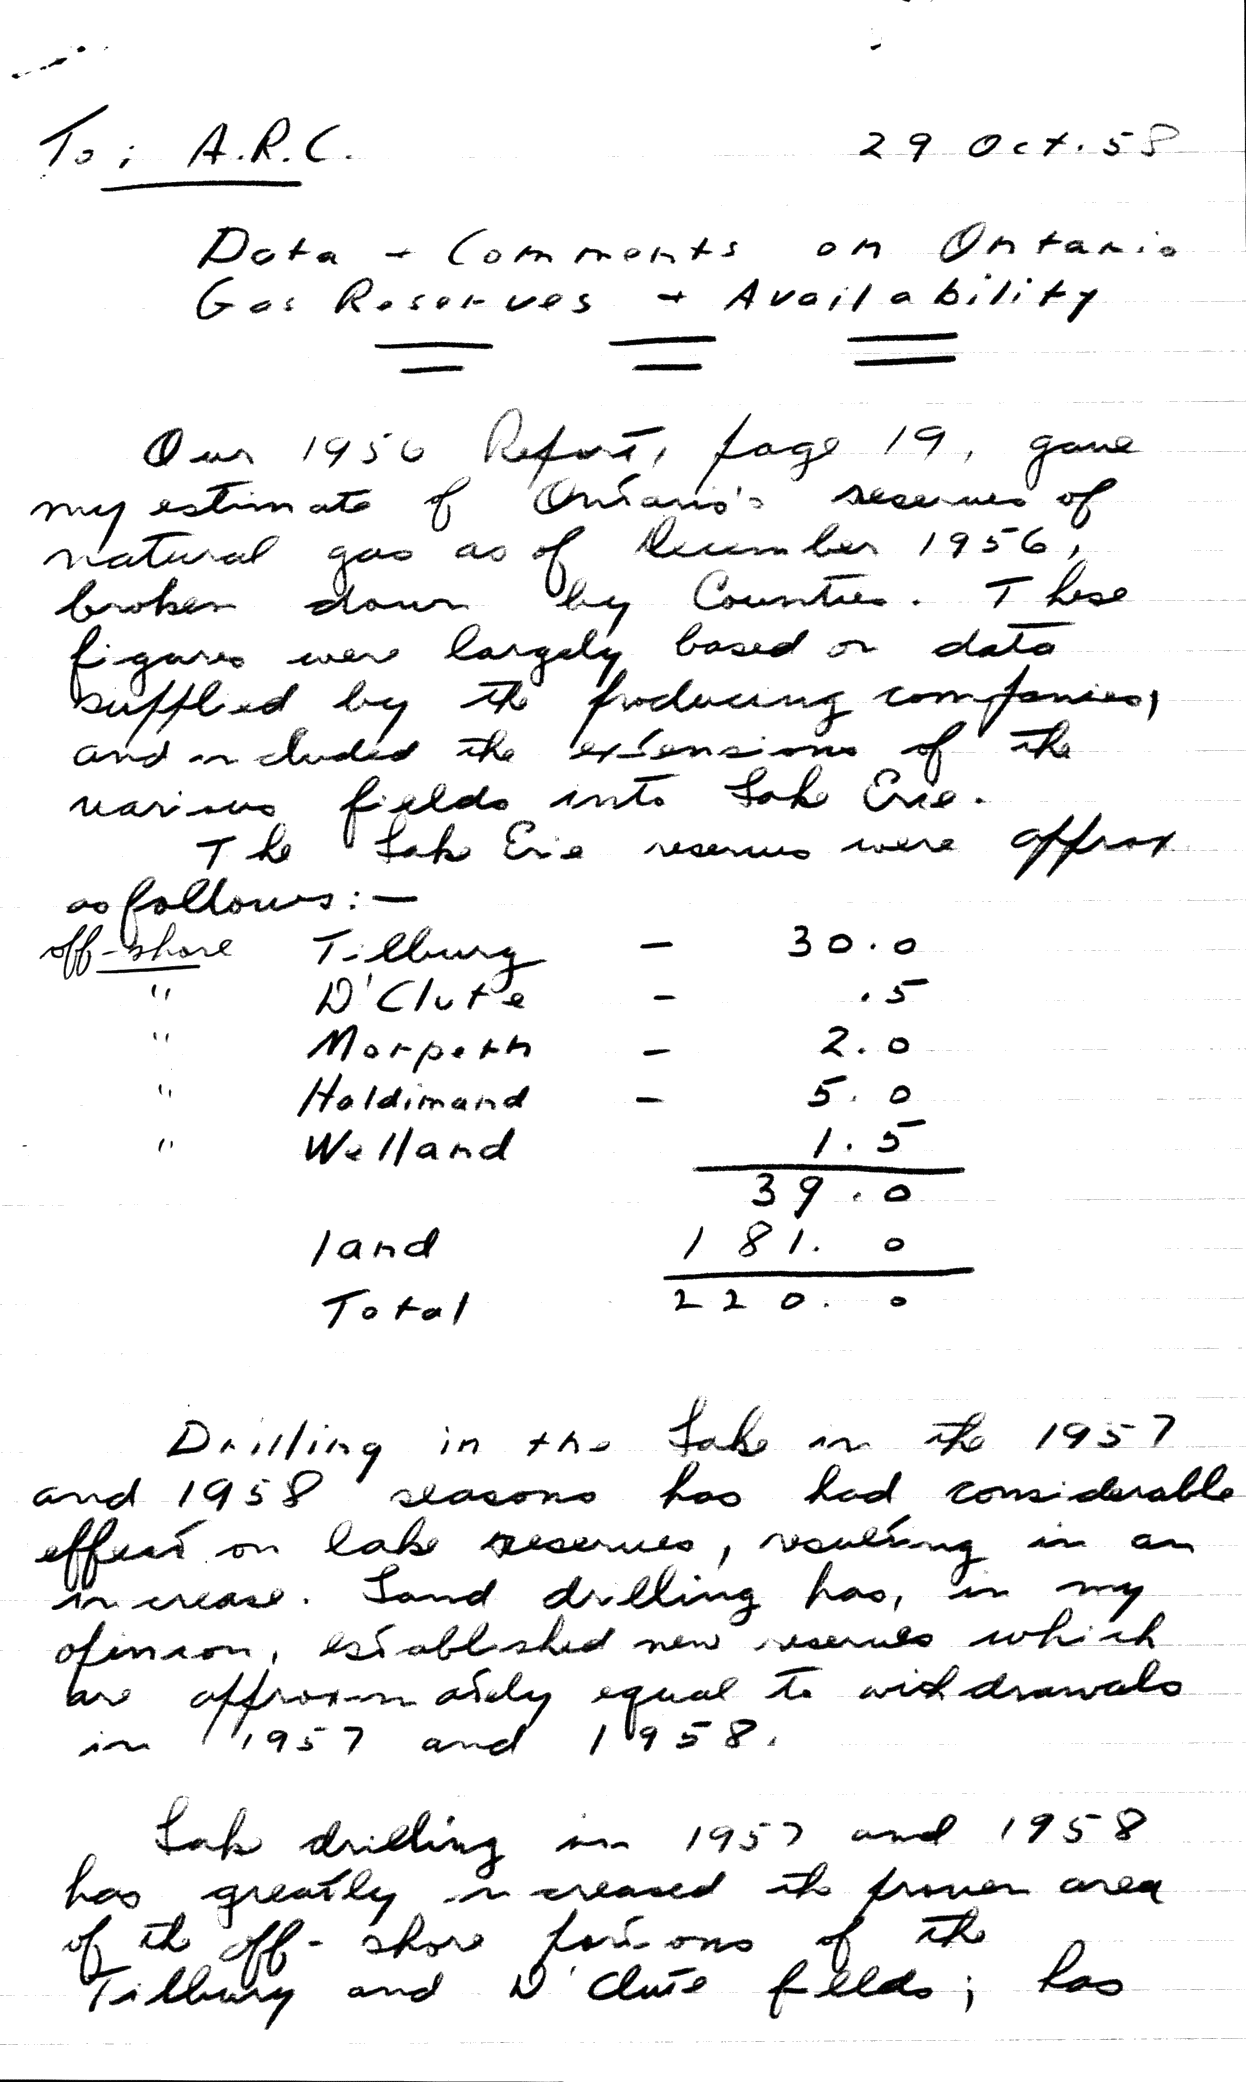 To: A.R.C. 29 Oct. 58
Data + Comments on Ontario
Gas Reserves + Availability
Our 1956 Report, page 19, gave
my estimate of Ontario's reserves of
natural gas as of December 1956,
broken down by Counties. These
figures were largely based on data
supplied by the producing companies,
and included the extensions of the
various fields into Lake Erie.
The Lake Erie reserves were approx
as follows:—
off-shore Tilbury - 30.0
" D'Clute - .5
" Morpeth - 2.0
" Haldimand - 5.0
" Welland 1.5
39.0
land 181.0
Total 220.0
Drilling in the Lake in the 1957
and 1958 seasons has had considerable
effect on lake reserves, resulting in an
increase. Land drilling has, in my
opinion, established new reserves which
are approximately equal to withdrawals
in 1957 and 1958.
Lake drilling in 1957 and 1958
has greatly increased the proven area
of the off-shore portions of the
Tilbury and D'Clute fields; has